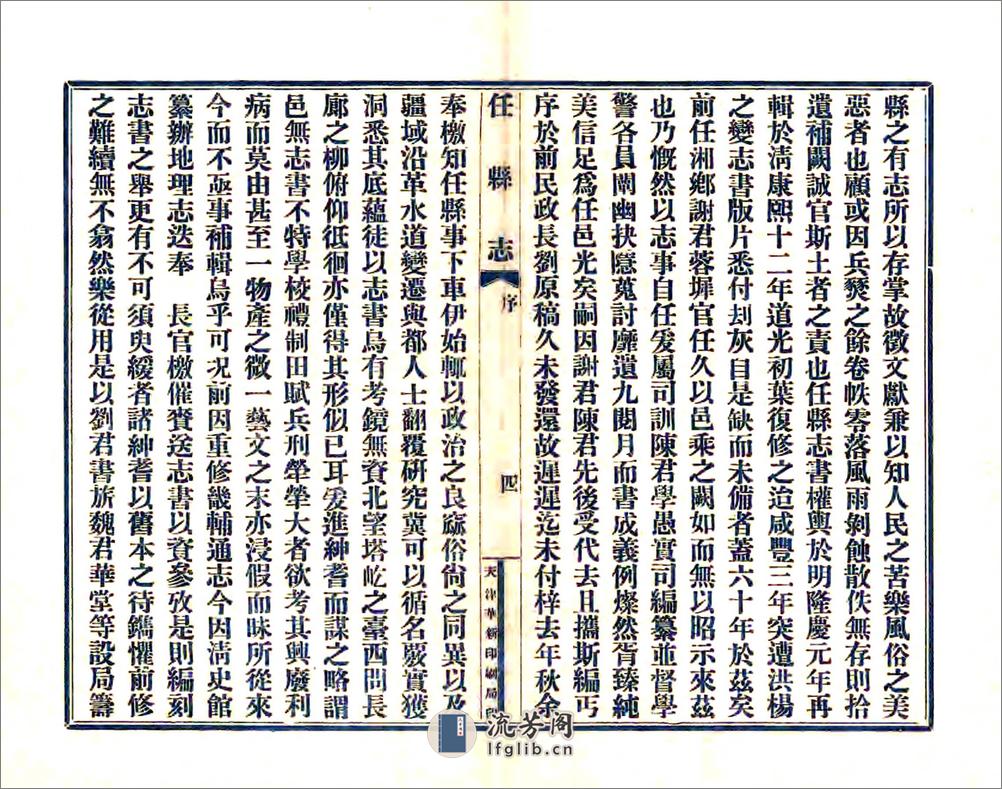 縣之有志所以存掌故徵文獻兼以知人民之苦樂風俗之美
惡者也顧或因兵燹之餘卷帙零落風雨剝蝕散佚無存則拾
遺補闕誠官斯土者之責也任縣志書權輿於明隆慶元年再
輯於淸康熙十二年道光初葉復修之迨咸豐三年突遭洪楊
之變志書版片悉付刦灰目是缺而未備者蓋六十年於茲矣
前任湘鄉謝君蓉墀官任久以邑乘之闕如而無以昭示來茲
也乃慨然以志事自任爰屬司訓陳君學愚實司編纂並督學
警各員闡幽抉隱蒐討靡遺九閱月而書成義例燦然胥臻純
美信足爲任邑光矣嗣因謝君陳君先後受代去且攜斯編丐
序於前民政長劉原稿久未發還故遲遲迄未付梓去年秋余
任縣志
序
四
天津華新印刷局印
奉檄知任縣事下車伊始輒以政治之良窳俗尙之同異以及
疆域沿革水道變遷與都人士翻覆硏究冀可以循名覈實獲
洞悉其底蘊徒以志書烏有考鏡無資北望塔屹之臺西問長
廊之柳俯仰徘徊亦僅得其形似已耳爰進紳耆而謀之略謂
邑無志書不特學校禮制田賦兵刑犖犖大者欲考其興廢利
病而莫由甚至一物產之微一藝文之末亦浸假而昧所從來
今而不亟事補輯烏乎可况前因重修畿輔通志今因淸史館
纂辦地理志迭奉　長官檄催賷送志書以資參攷是則編刻
志書之舉更有不可須臾緩者諸紳耆以舊本之待鐫懼前修
之難續無不翕然樂從用是以劉君書旂魏君華堂等設局籌
流芳阁
lfglib.cn